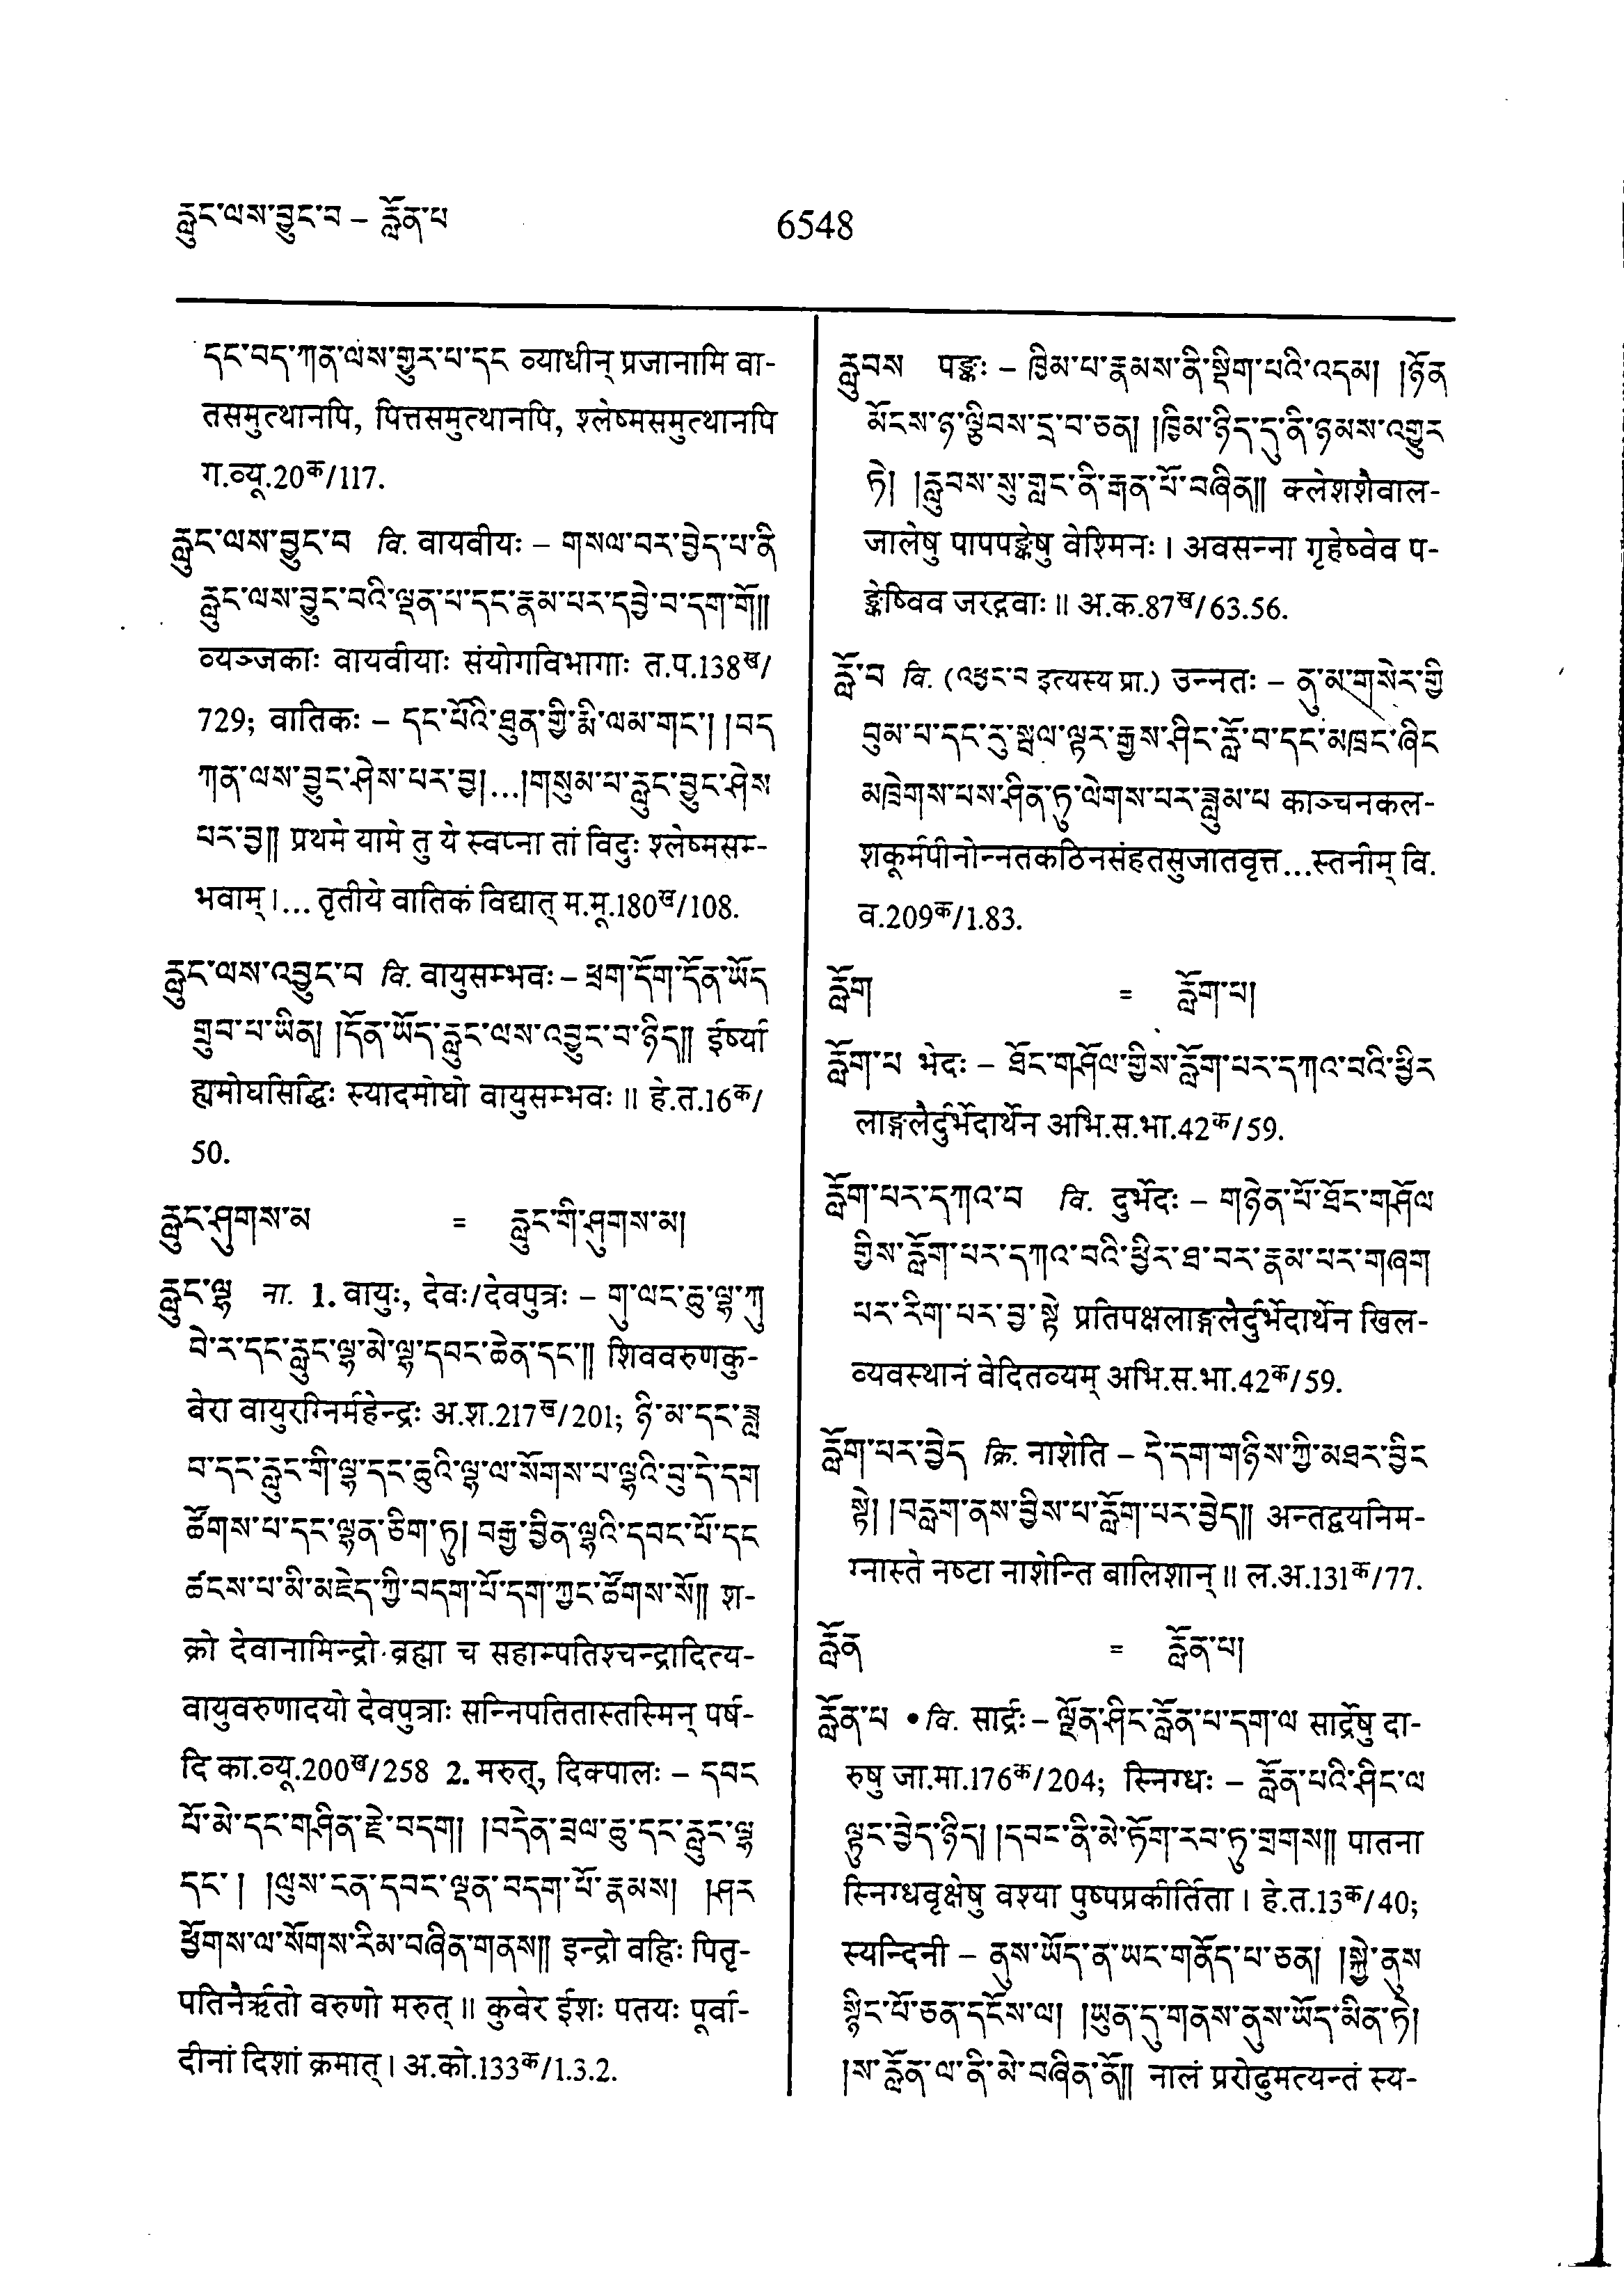 རླུང་ལས་བྱུང་བ – རློན་པ
6548
དང་བད་ཀན་ལས་གྱུར་པ་དང व्याधीन् प्रजानामि वा-
तसमुत्थानपि, पित्तसमुत्थानपि, श्लेष्मसमुत्थानपि
ग.व्यू.20क/117.
རླུང་ལས་བྱུང་བ वि. वायवीयः – གསལ་བར་བྱེད་པ་ནི
རླུང་ལས་བྱུང་བའི་ལྡན་པ་དང་རྣམ་པར་དབྱེ་བ་དག་གོ།།
व्यञ्जकाः वायवीयाः संयोगविभागाः त.प.138ख/
729; वातिकः – དང་པོའི་ཐུན་གྱི་རྨི་ལམ་གང་། །བད
ཀན་ལས་བྱུང་ཤེས་པར་བྱ།...།གསུམ་པ་རླུང་བྱུང་ཤེས
པར་བྱ།། प्रथमे यामे तु ये स्वप्ना तां विदुः श्लेष्मसम्-
भवाम्।... तृतीये वातिकं विद्यात् म.मू.180ख/108.
རླུང་ལས་འབྱུང་བ वि. वायुसम्भवः – ཕྲག་དོག་དོན་ཡོད
གྲུབ་པ་ཡིན། །དོན་ཡོད་རླུང་ལས་འབྱུང་བ་ཉིད།། ईर्ष्या
ह्यमोघसिद्धिः स्यादमोघो वायुसम्भवः॥ हे.त.16क/
50.
རླུང་ཤུགས་མ = རླུང་གི་ཤུགས་མ།
རླུང་ལྷ ना. 1. वायुः, देवः/देवपुत्रः – གུ་ལང་ཆུ་ལྷ་ཀུ
བེ་ར་དང་རླུང་ལྷ་མེ་ལྷ་དབང་ཆེན་དང་།། शिववरुणकु-
बेरा वायुरग्निर्महेन्द्रः अ.श.217ख/201; ཉི་མ་དང་ཟླ
བ་དང་རླུང་གི་ལྷ་དང་ཆུའི་ལྷ་ལ་སོགས་པ་ལྷའི་བུ་དེ་དག
ཚོགས་པ་དང་ལྷན་ཅིག་ཏུ། བརྒྱ་བྱིན་ལྷའི་དབང་པོ་དང
ཚངས་པ་མི་མཇེད་ཀྱི་བདག་པོ་དག་ཀྱང་ཚོགས་སོ།། श-
क्रो देवानामिन्द्रो ब्रह्मा च सहाम्पतिश्चन्द्रादित्य-
वायुवरुणादयो देवपुत्राः सन्निपतितास्तस्मिन् पर्ष-
दि का.व्यू.200ख/258 2. मरुत्, दिक्पालः – དབང
པོ་མེ་དང་གཤིན་རྗེ་བདག། །བདེན་བྲལ་ཆུ་དང་རླུང་ལྷ
དང་། །ལུས་ངན་དབང་ལྡན་བདག་པོ་རྣམས། །ཤར
ཕྱོགས་ལ་སོགས་རིམ་བཞིན་གནས།། इन्द्रो वह्निः पितृ-
पतिर्नैर्ऋतो वरुणो मरुत्॥ कुबेर ईशः पतयः पूर्वा-
दीनां दिशां क्रमात्। अ.को.133क/1.3.2.
རླུབས पङ्कः – ཁྱིམ་པ་རྣམས་ནི་སྡིག་པའི་འདམ། །ཉོན
མོངས་ཉ་ལྕིབས་དྲ་བ་ཅན། །ཁྱིམ་ཉིད་དུ་ནི་ཉམས་འགྱུར
ཏེ། །རླུབས་སུ་གླང་ནི་རྒན་པོ་བཞིན།། क्लेशशैवाल-
जालेषु पापपङ्केषु वेश्मिनः। अवसन्ना गृहेष्वेव प-
ङ्केष्विव जरद्गवाः॥ अ.क.87ख/63.56.
རློ་བ वि. (འཕྱང་བ इत्यस्य प्रा.) उन्नतः – ནུ་མ་གསེར་གྱི
བུམ་པ་དང་རུ་སྦལ་ལྟར་རྒྱས་ཤིང་རློ་བ་དང་མཁྲང་ཞིང
མཁྲེགས་པས་ཤིན་ཏུ་ལེགས་པར་ཟླུམ་པ काञ्चनकल-
शकूर्मपीनोन्नतकठिनसंहतसुजातवृत्त...स्तनीम् वि.
व.209क/1.83.
རློག = རློག་པ།
རློག་པ भेदः – ཐོང་གཤོལ་གྱིས་རློག་པར་དཀའ་བའི་ཕྱིར
लाङ्गलैर्दुर्भेदार्थेन अभि.स.भा.42क/59.
རློག་པར་དཀའ་བ वि. दुर्भेदः – གཉེན་པོ་ཐོང་གཤོལ
གྱིས་རློག་པར་དཀའ་བའི་ཕྱིར་ཐ་བར་རྣམ་པར་གཞག
པར་རིག་པར་བྱ་སྟེ प्रतिपक्षलाङ्गलैर्दुर्भेदार्थेन खिल-
व्यवस्थानं वेदितव्यम् अभि.स.भा.42क/59.
རློག་པར་བྱེད क्रि. नाशेति – དེ་དག་གཉིས་ཀྱི་མཐར་བྱིང
སྟེ། །བརླག་ནས་བྱིས་པ་རློག་པར་བྱེད།། अन्तद्वयनिम-
ग्नास्ते नष्टा नाशेन्ति बालिशान्॥ ल.अ.131क/77.
རློན = རློན་པ།
རློན་པ • वि. सार्द्रः – ལྗོན་ཤིང་རློན་པ་དག་ལ सार्द्रेषु दा-
रुषु जा.मा.176क/204; स्निग्धः – རློན་པའི་ཤིང་ལ
ལྟུང་བྱེད་ཉིད། །དབང་ནི་མེ་ཏོག་རབ་ཏུ་གྲགས།། पातना
स्निग्धवृक्षेषु वश्या पुष्पप्रकीर्तिता। हे.त.13क/40;
स्यन्दिनी – ནུས་ཡོད་ན་ཡང་གནོད་པ་ཅན། །སྐྱེ་ནུས
སྙིང་པོ་ཅན་དངོས་ལ། །ཡུན་དུ་གནས་ནུས་ཡོད་མིན་ཏེ།
།ས་རློན་ལ་ནི་མེ་བཞིན་ནོ།། नालं प्ररोढुमत्यन्तं स्य-